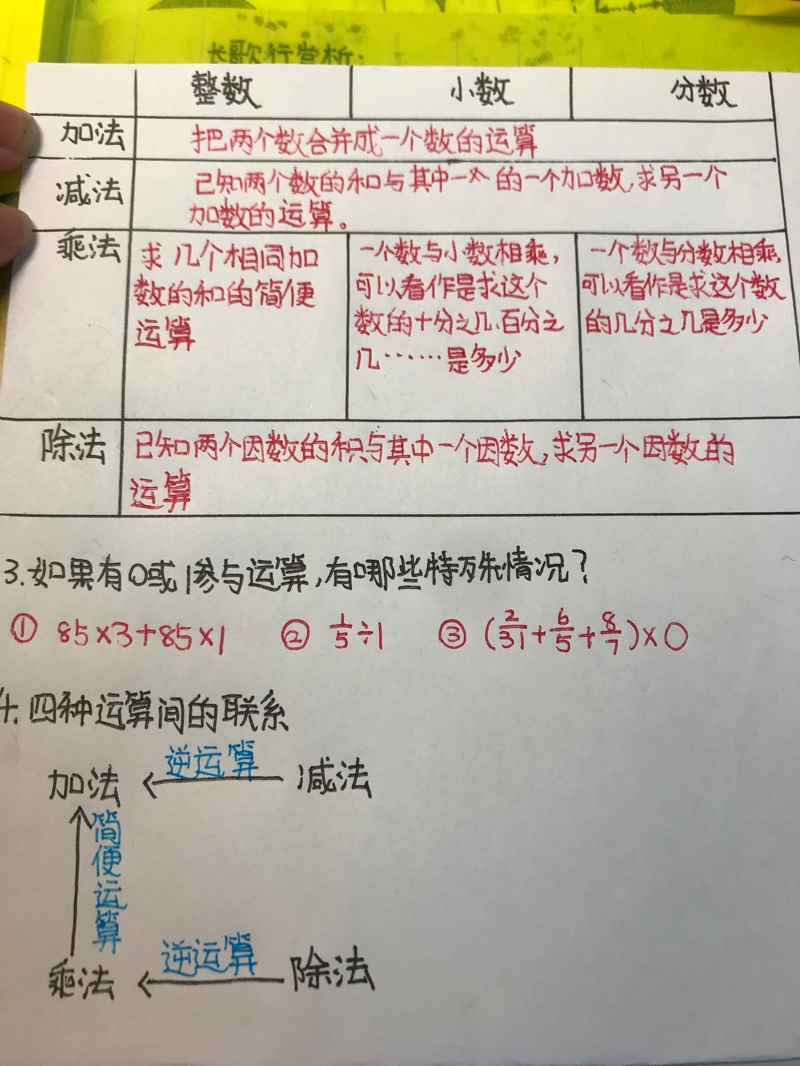 长歌行赏析:
整数 小数 分数
加法 把两个数合并成一个数的运算
减法 已知两个数的和与其中一个的一个加数,求另一个
加数的运算。
乘法
求几个相同加
数的和的简便
运算
一个数与小数相乘,
可以看作是求这个
数的十分之几、百分之
几……是多少
一个数与分数相乘,
可以看作是求这个数
的几分之几是多少
除法 已知两个因数的积与其中一个因数,求另一个因数的
运算
3.如果有0或1参与运算,有哪些特殊情况?
① 85×3+85×1 ② 1/5÷1 ③ (2/31+6/5+8/7)×0
4.四种运算间的联系
加法 逆运算 减法
简便运算
乘法 逆运算 除法